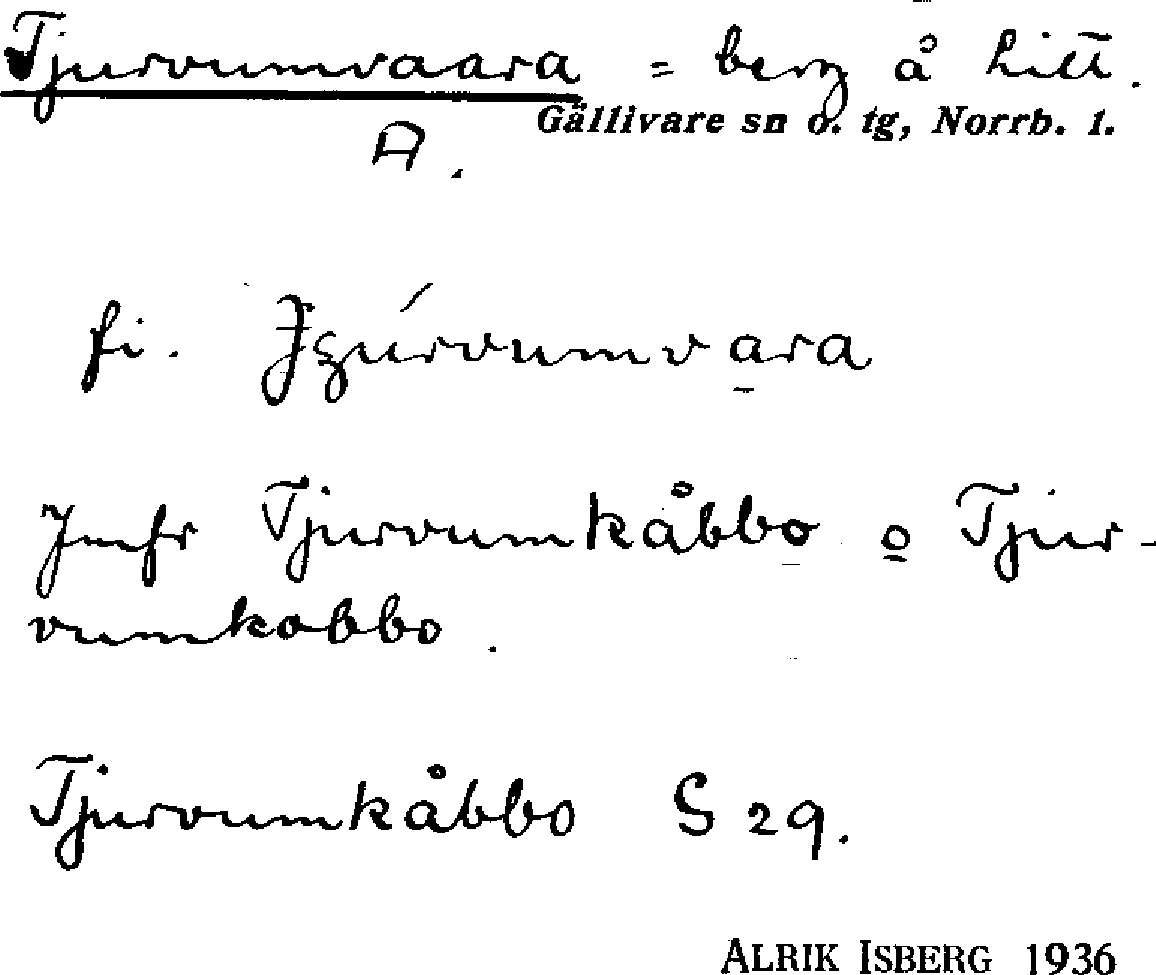 Tjurvumvaara = berg å hitt.
Gällivare sn o. tg, Norrb. l.
A.
fi.
Jmfr Tjurvumkåbbo o Tjur-
vumkobbo.
Tjurvumkåbbo S 29.
ALRIK ISBERG 1936